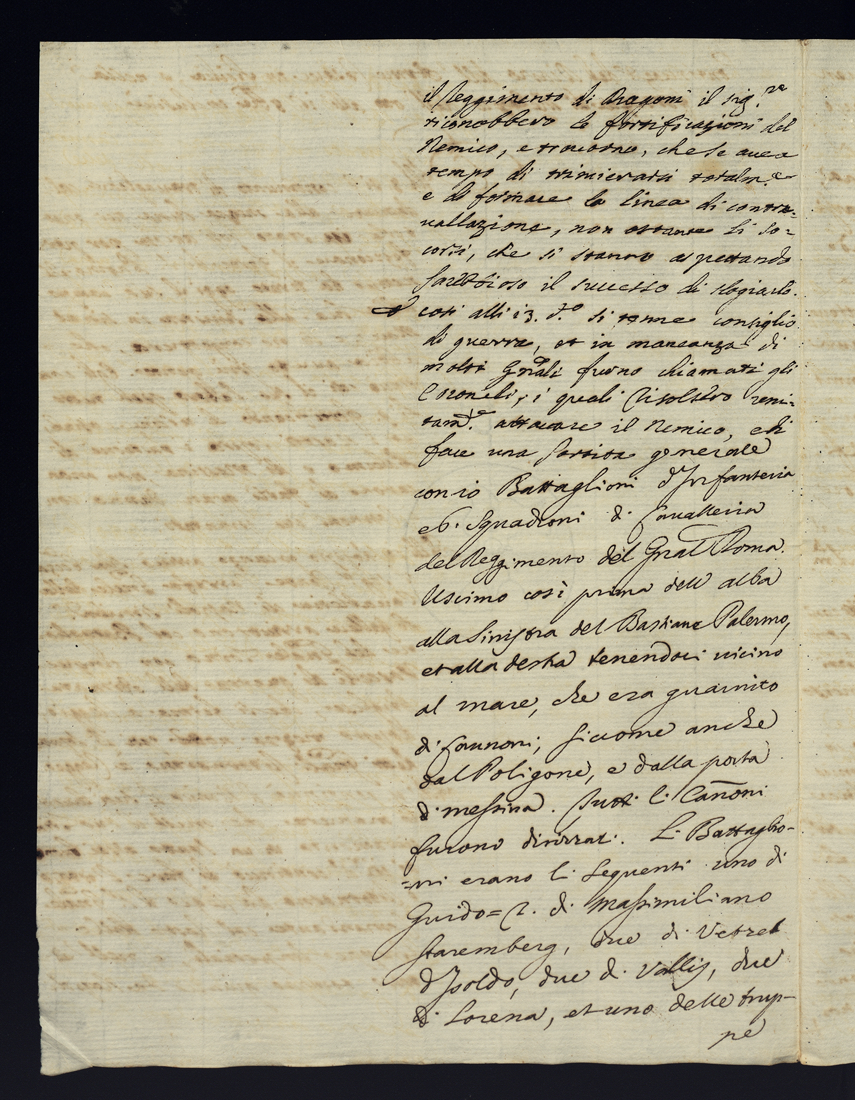 il Reggimento di Dragoni il sig.re
riconobbero le fortificazioni del
Nemico, e trovorno, che se avea
tempo di trincierarsi totalm.e
e di formare la linea di contra-
vallazione, non ostante li so-
corsi, che si stanno aspettando
sarebbe il successo di
così alli 13. d.o si tenne consiglio
di guerra, et in mancanza di
molti Gnāli furno chiamati gli
Coronelli, i quali risolsero
attacare il Nemico, e di
fare una sortita generale
con 10 Battaglioni d'Infanteria
e 6. Squadroni di Cavalleria
del Reggimento del Gnāl Roma.
Uscimo così prima dell'alba
alla sinistra del Bastione Palermo,
et alla destra tenendoci vicino
al mare, che era guarnito
di Cannoni, siccome anche
dal Poligone, e dalla porta
di messina. Tutti li Cañoni
furono dirizzati. Li Battaglio-
=ni erano li seguenti uno di
Guido= S. di Massimiliano
Staremberg, due di Vetzel
due di Wallis, due
di Lorena, et uno delle trup-
pe